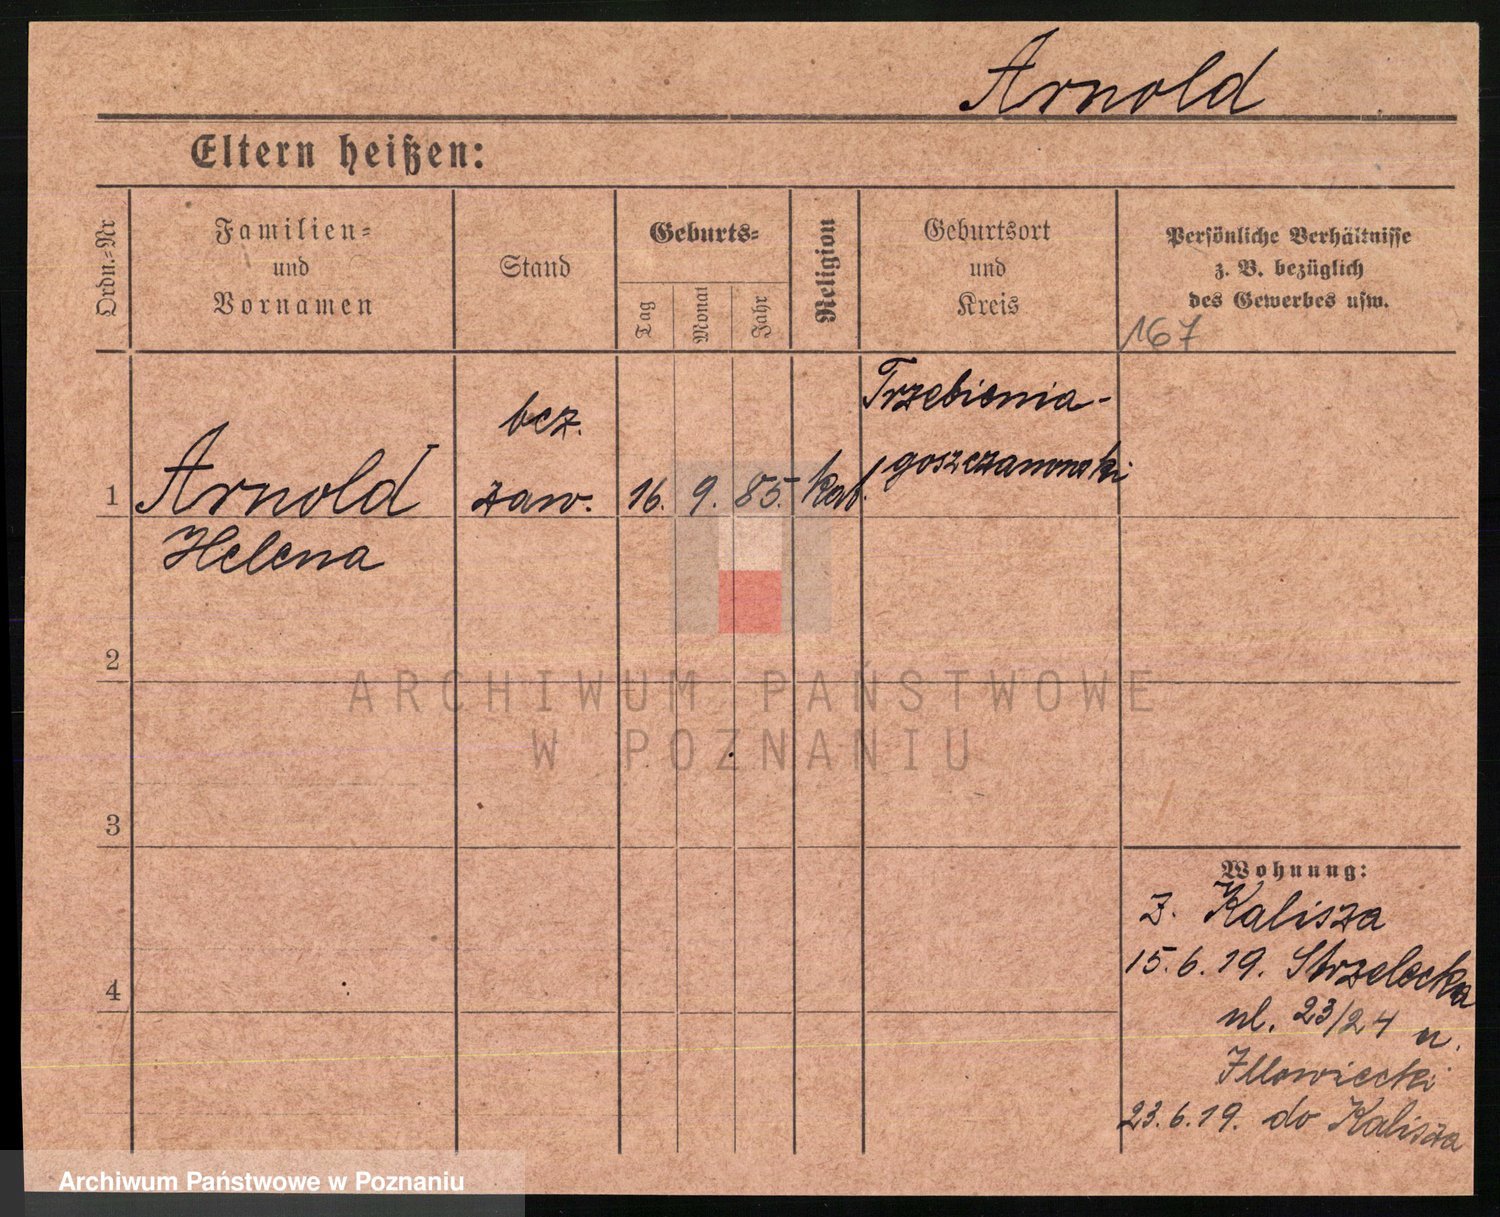 Arnold
Eltern heißen:
Ordn.-Nr
Familien-
und
Vornamen
Stand
Geburts-
Tag
Monat
Jahr
Religion
Geburtsort
und
Kreis
Persönliche Verhältnisse
z. B. bezüglich
des Gewerbes usw.
167
1
Arnold
Helena
bez.
zaw.
16. 9. 85.
kat.
Trzebienia-
goszczanowski
2
3
4
Wohnung:
z. Kalisza
15.6.19. Strzelecka
ul. 23/24 u.
Illowiecki
23.6.19. do Kalisza
ARCHIWUM PAŃSTWOWE
W POZNANIU
Archiwum Państwowe w Poznaniu